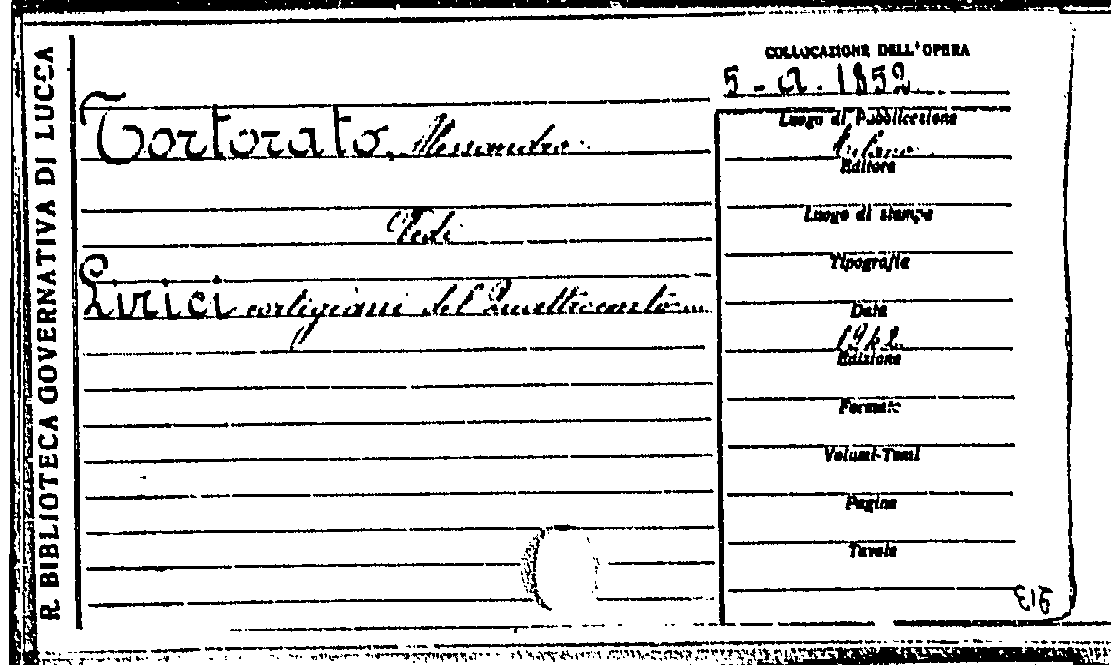 R. BIBLIOTECA GOVERNATIVA DI LUCCA
COLLOCAZIONE DELL'OPERA
5 - a. 1852
Tortorato, Alessandro
Vedi
Lirici cortigiani del Quattrocento
Luogo di Pubblicazione
Milano
Editore
Luogo di stampa
Tipografia
Data
1942
Edizione
Formato
Volumi-Tomi
Pagine
Tavole